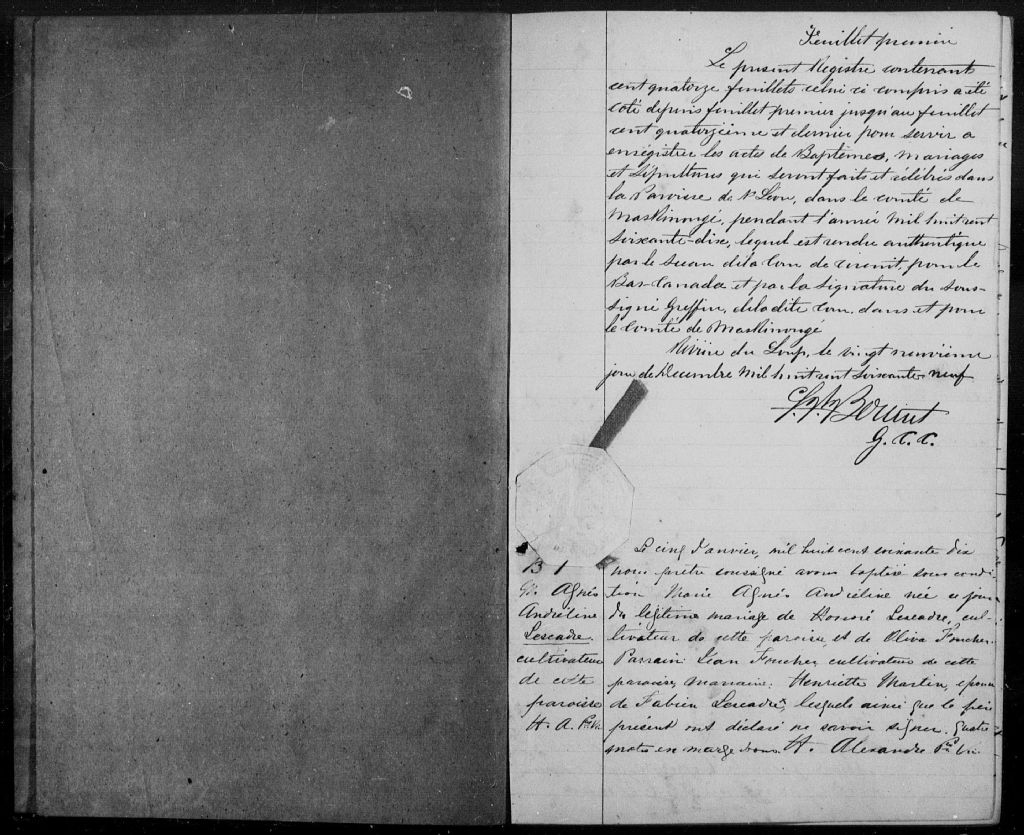 Feuillet premier
Le présent Registre contenant
cent quatorze feuillets celui ci compris a été
coté depuis feuillet premier jusqu'au feuillet
cent quatorzième et dernier pour servir a
enrégistrer les actes de Baptêmes, Mariages
et Sépultures qui seront faits et célébrés dans
la Paroisse de St Léon, dans le comté de
Maskinongé, pendant l'année Mil huit cent
soixante-dix, lequel est rendu authentique
par le Sceau de la Cour de circuit, pour le
Bas-Canada et par la signature du sous-
signé Greffier, de la dite Cour, dans et pour
le Comté de Maskinongé
Rivière du Loup, le vingt neuvième
jour de Décembre Mil huit cent soixante neuf
G. C. C.
B 1
M. Agnés
Andréline
Lescadre.
cultivateur
de cette
paroisse
H. A. Ptre Vic
Le cinq Janvier, mil huit cent soixante dix
nous prêtre soussigné avons baptisé sous condi-
tion Marie Agnés Andréline née ce jour
du légitime mariage de Honoré Lescadre, cul-
tivateur de cette paroisse et de Oliva Foucher.
Parrain Jean Foucher, cultivateur de cette
paroisse, marraine. Henriette Martin, épouse
de Fabien Lescadre, lesquels ainsi que le père
présent ont déclaré ne savoir signer. Quatre
mots en marge bons. H. Alexandre Ptre Vic